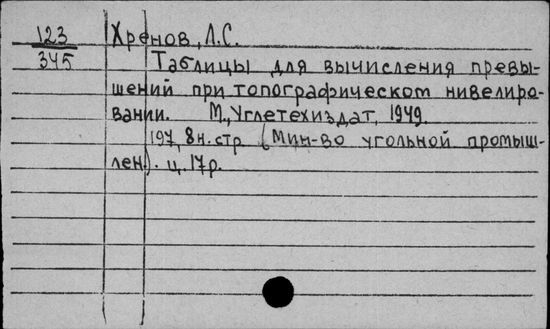 123 Хренов, Л.С.
345 Таблицы для вычисления превы-
шений при топографическом нивелиро-
вании. М., Углетехиздат, 1949.
197, 8 н. стр. (Мин-во угольной промыш-
лен.). ц. 17 р.